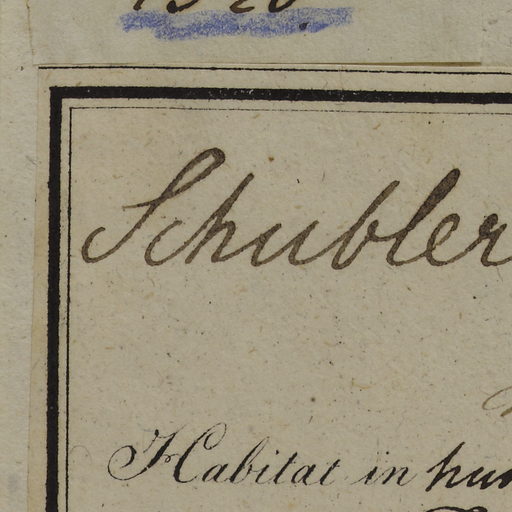 Schubler
Habitat in hum